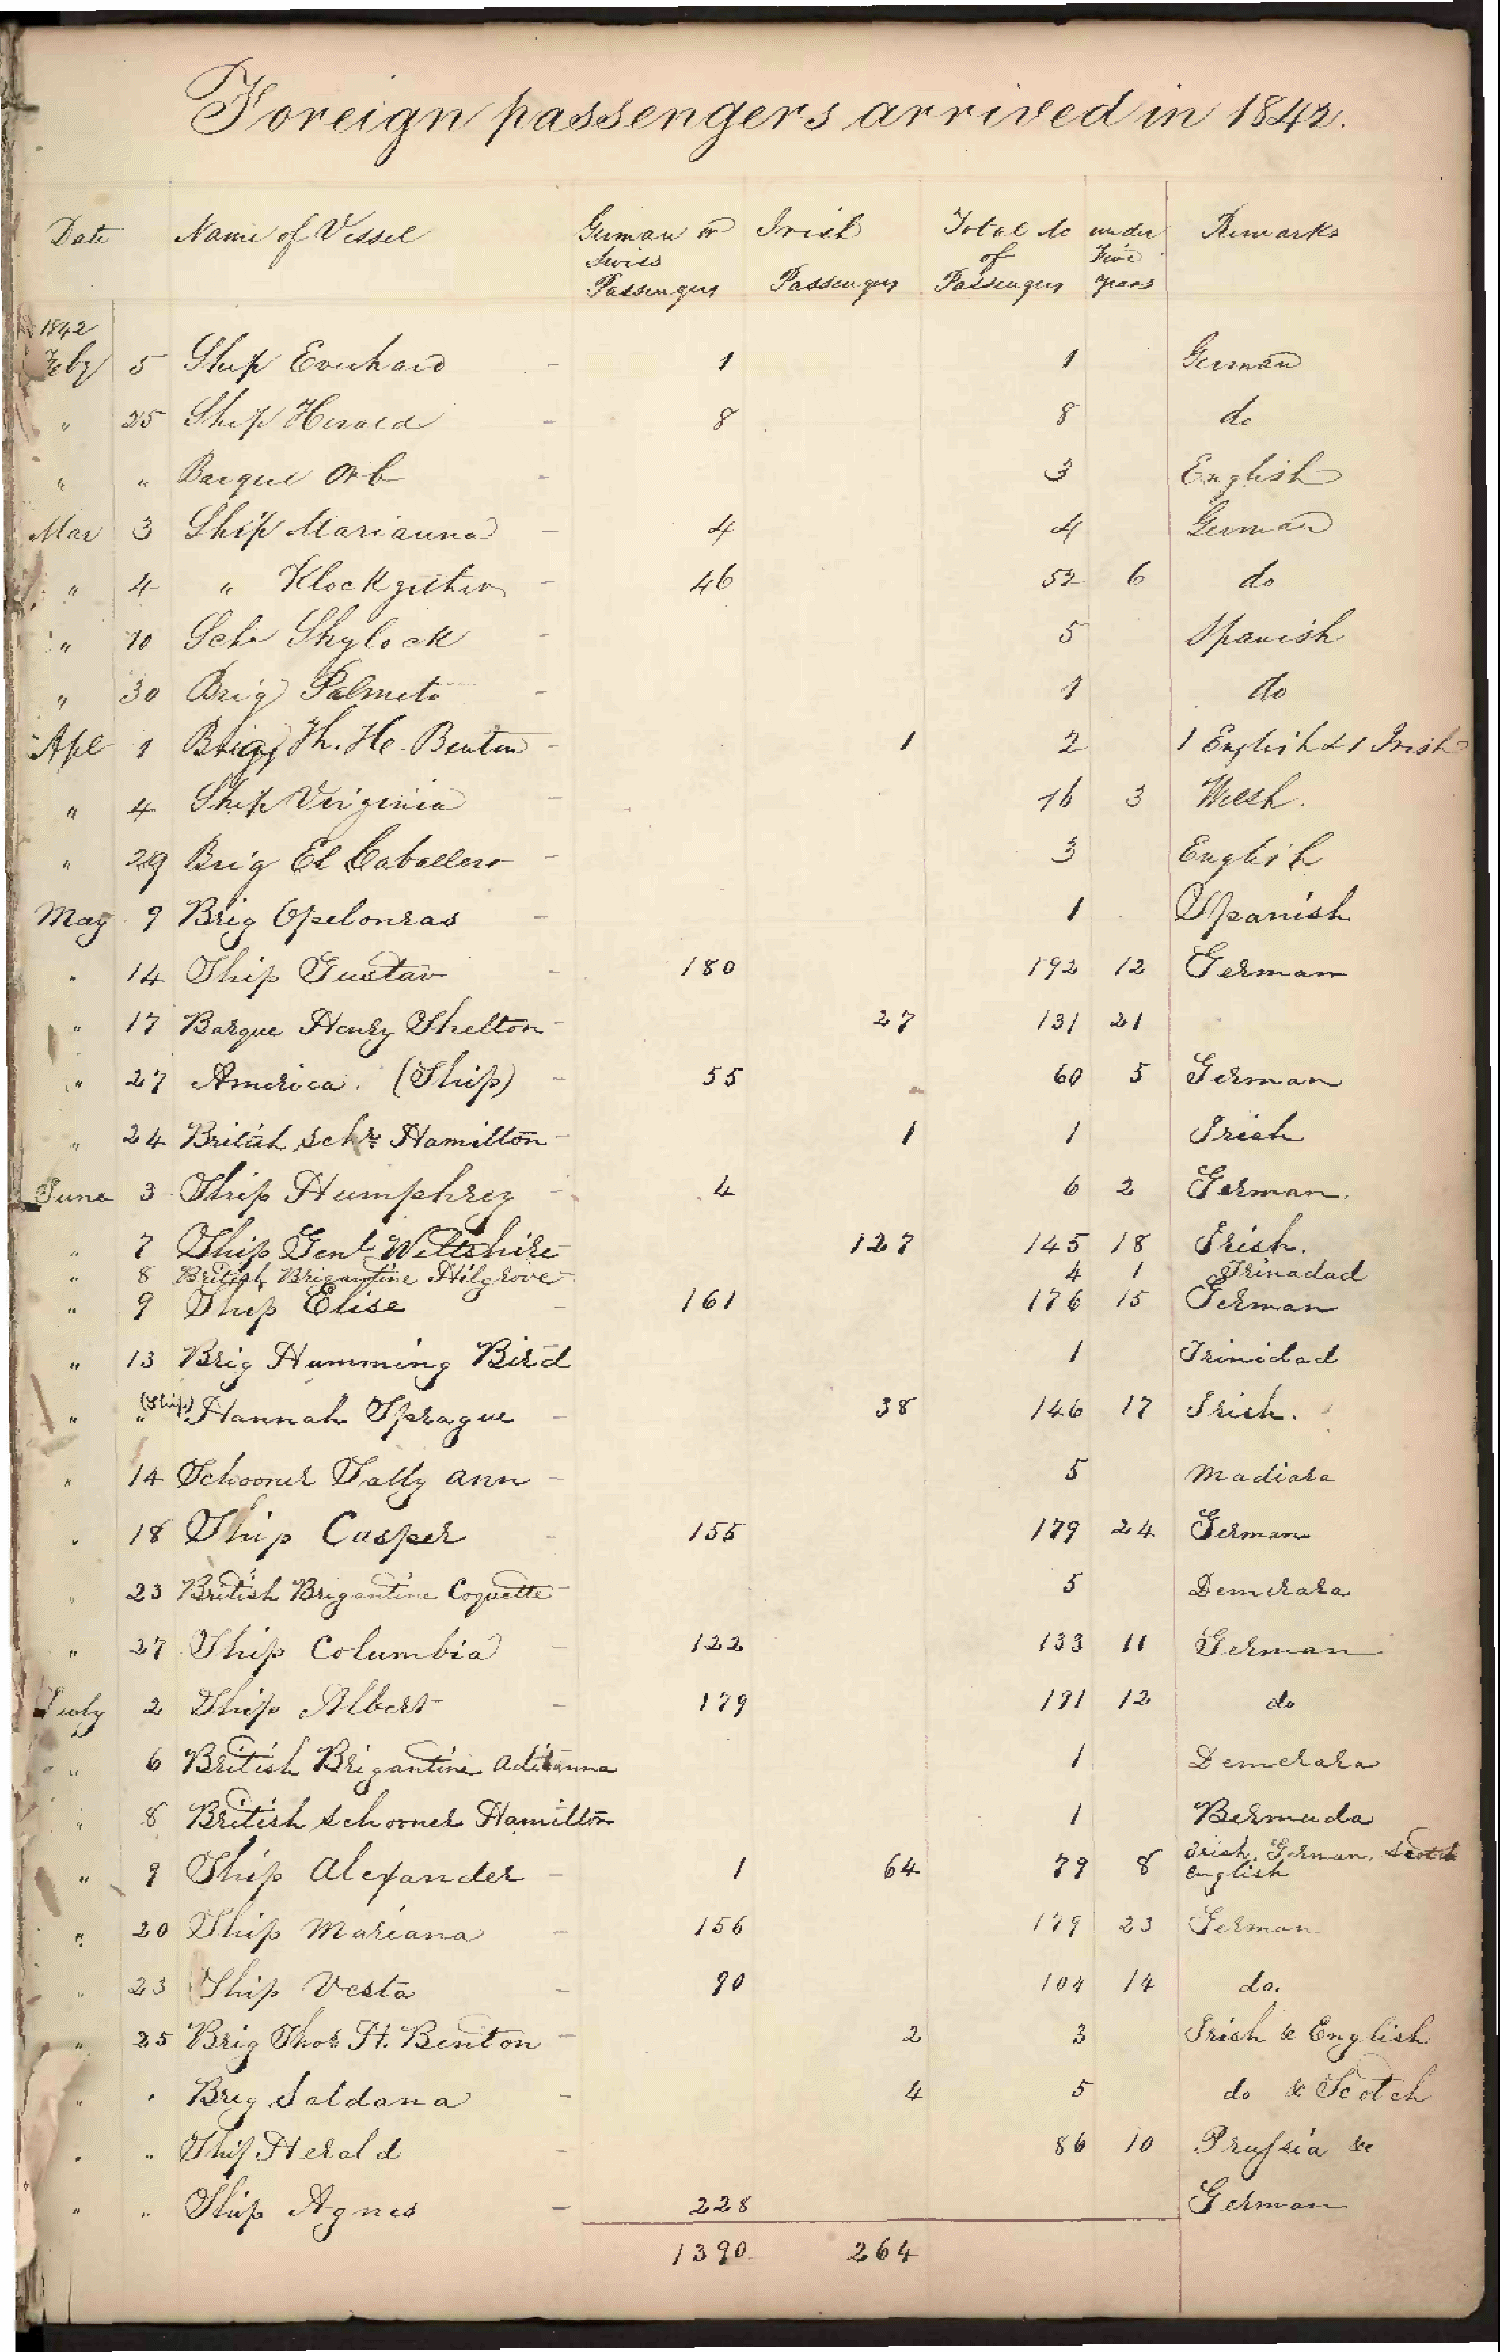 Foreign passengers arrived in 1842.
Date Name of Vessel German or Swiss Passengers Irish Passengers Total No of Passengers under Five years Remarks
1842
Feby 5 Ship Everhard - 1 1 German
" 25 Ship Herald - 8 8 do
" " Barque Orb - 3 English
Mar 3 Ship Marianna - 4 4 German
" 4 " Klockgiether - 46 52 6 do
" 10 Schr Shylock - 5 Spanish
" 30 Brig Palmeto - 1 do
Apl 1 Brig Th. H. Benton - 1 2 1 English & 1 Irish
" 4 Ship Virginia - 16 3 Welsh.
" 29 Brig El Caballero - 3 English
May 9 Brig Opelousas - 1 Spanish
" 14 Ship Gustav - 180 192 12 German
" 17 Barque Henry Shelton - 27 131 21
" 27 America. (Ship) - 55 60 5 German
" 24 British Schr Hamilton - 1 1 Irish
June 3 Ship Humphrey - 4 6 2 German.
" 7 Ship Genl Wiltshire - 127 145 18 Irish.
" 8 British Brigantine Hilgrove - 4 1 Trinadad
" 9 Ship Elise - 161 176 15 German
" 13 Brig Humming Bird 1 Trinidad
" " (Ship) Hannah Sprague - 38 146 17 Irish.
" 14 Schooner Sally Ann - 5 Madiara
" 18 Ship Casper - 155 179 24 German
" 23 British Brigantine Coquette - 5 Demerara
" 27 Ship Columbia - 122 133 11 German
July 2 Ship Albert - 179 191 12 do
" 6 British Brigantine 1 Demerara
" 8 British Schooner Hamilton 1 Bermuda
" 9 Ship Alexander - 1 64 79 8 Irish. German. Scotch english
" 20 Ship Mariana - 156 179 23 German
" 23 Ship Vesta - 90 104 14 do.
" 25 Brig Thos H. Benton - 2 3 Irish & English
" " Brig Saldana - 4 5 do & Scotch
" " Ship Herald - 86 10 Prussia &
" " Ship Agnes - 228 German
1390 264